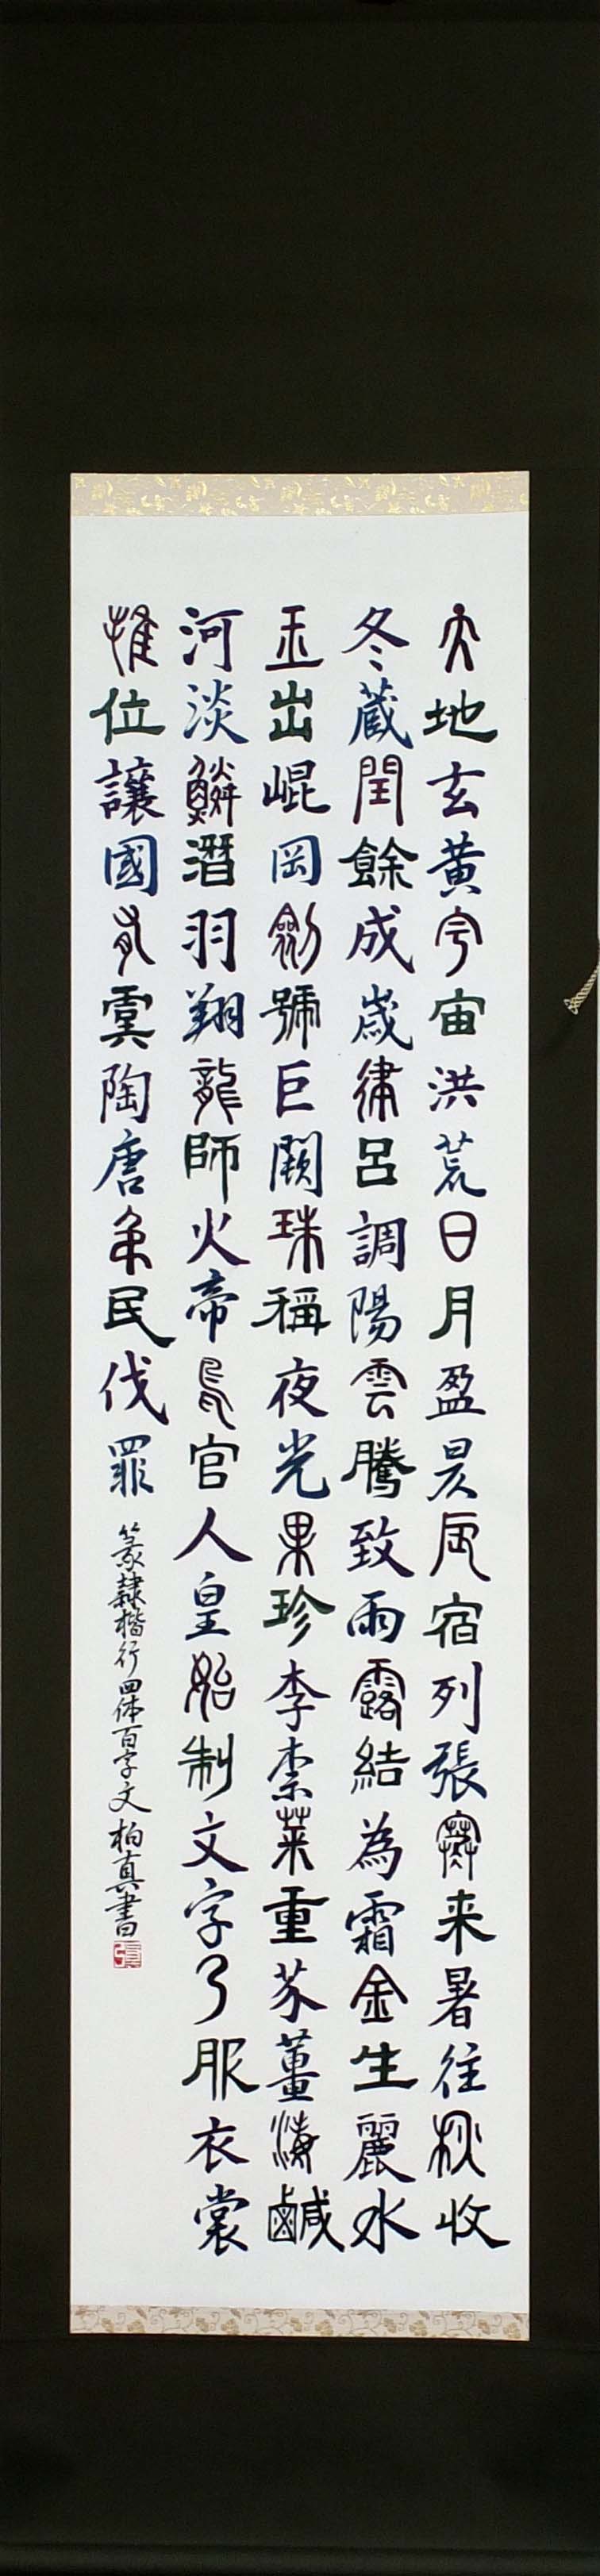 天地玄黄宇宙洪荒日月盈昃辰宿列張寒来暑往秋收
冬蔵閏餘成歳律呂調陽雲騰致雨露結為霜金生麗水
玉出崐岡劍號巨闕珠稱夜光果珍李柰菜重芥薑海鹹
河淡鱗潜羽翔龍師火帝鳥官人皇始制文字乃服衣裳
推位讓國有虞陶唐弔民伐罪
篆隷楷行四体百字文 柏真書